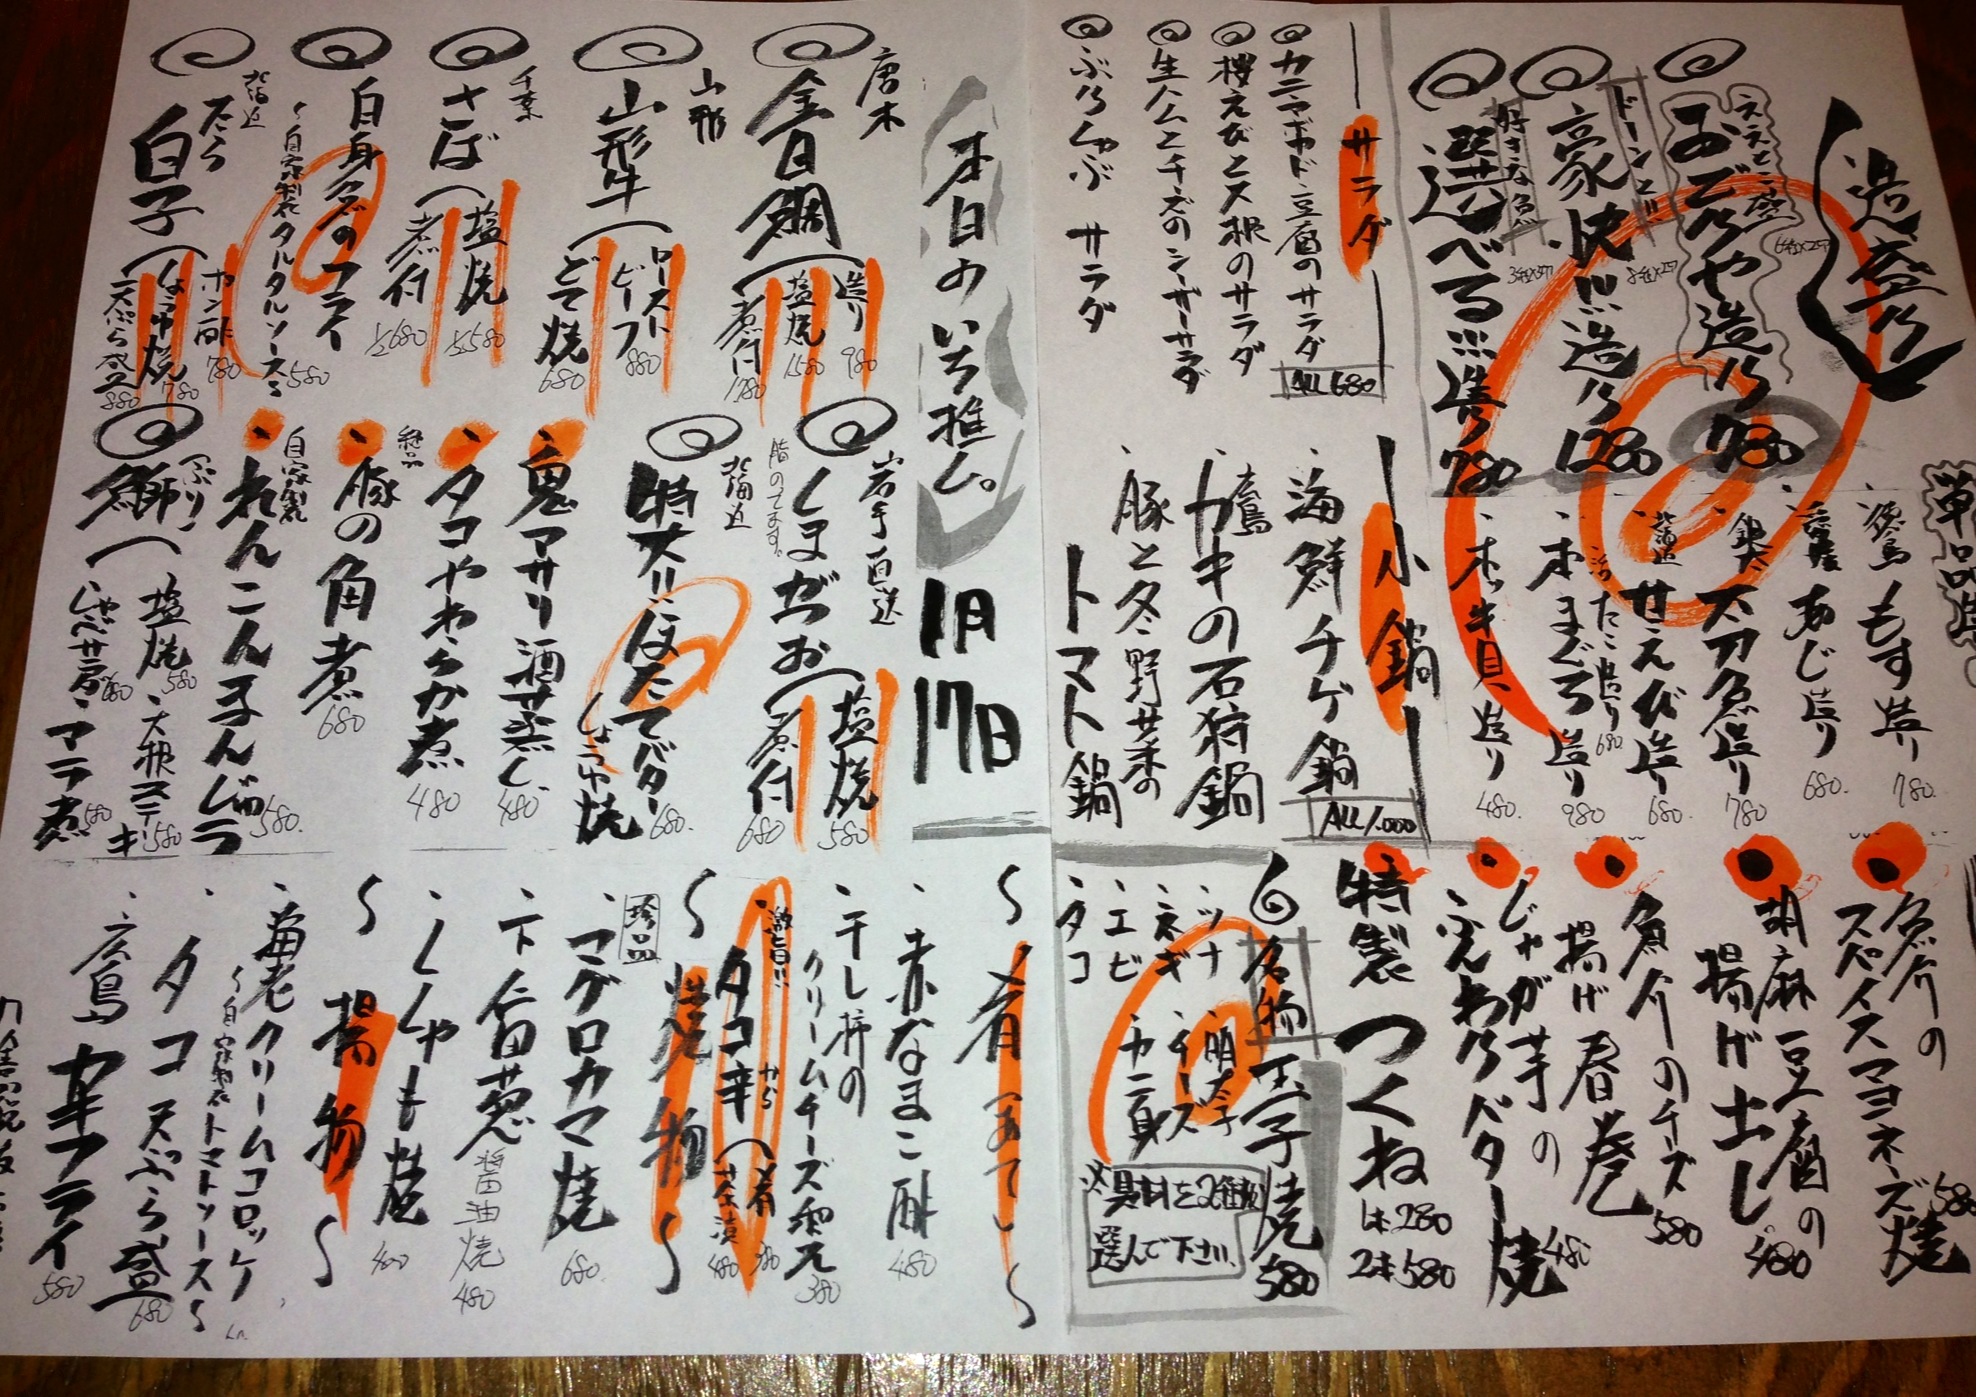 造盛り
ええとこ盛
おどりや造り 780
ドーンと!!
豪快!!!造り 1280
好きな魚
選べる!!!造り 780
単品
徳島
もす造り 780.
愛媛
あじ造り 680.
太刀魚造り 780
北海道
せえび造り 680.
活たこ造り 680
本まぐろ造り 980
本ッキ貝造り 480.
サラダ
カニアボカド豆腐のサラダ
桜えびと大根のサラダ
生ハムとチーズのシーザーサラダ
ぶりしゃぶサラダ
ALL 680
小鍋
海鮮チゲ鍋
広島
カキの石狩鍋
豚と冬野菜の
トマト鍋
ALL 1.000
魚介の
スパイスマヨネーズ焼 580
胡麻豆腐の
揚げ出し 480
魚介のチーズ
揚げ春巻 580
じゃが芋の
完わりバター焼 480
特製つくね
1本280
2本580
名物玉子焼 580
ツナ
ネギ
エビ
タコ
明太子
チーズ
カニ身
※具材を2種類
選んで下さい
本日のいち推ム。
1月17日
唐木
金目鯛
造り 980
塩焼 1580
煮付 1780
山形
山形牛
ローストビーフ 880
どて焼 680
千葉
さば
塩焼 1/2 580
煮付 1/2 680
白身魚のフライ
~自家製タルタルソース~ 580
北海道
たら
白子
ポン酢 780
しょうゆ焼 780
天ぷら盛 880
岩手直送
くまがつお
脂のてます。
塩焼 580
煮付 680
北海道
特大!!ほたてバター
しょうゆ焼 680.
鬼アサリ酒蒸し 480.
タコやわらか煮 480
絶品
豚の角煮 680
自家製
れんこんまんじゅう 580.
ぶり
鰤
塩焼 580
大根ステーキ 580
しゃぶサラダ 680
アラ煮 580
~肴あて~
赤なまこ酢 480
干し柿の
クリームチーズ和え 380
激旨!!
タコ辛
から
~焼物~
珍品
マグロカマ焼 680.
下仁田葱
醤油焼 480
ししゃも焼 400
~揚物~
海老クリームコロッケ
~自家製トマトソース~
タコ天ぷら盛 680
広島カキフライ 580